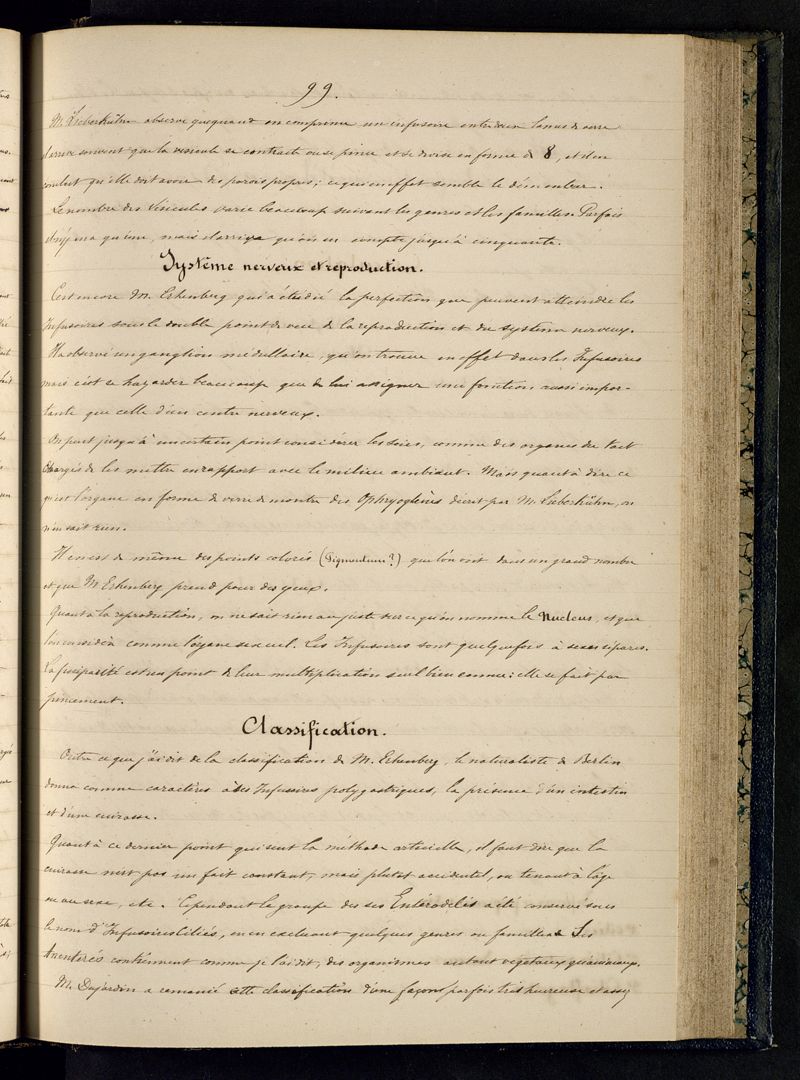 99.
M. Lieberkühn observe que quand on comprime un infusoire entre deux lames de verre
il arrive souvent que la vésicule se contracte ou se pince et se divise en forme de 8, et il en
conclut qu'elle doit avoir des parois propres; ce qui en effet semble le démontrer.
Le nombre des Vésicules varie beaucoup suivant les genres et les familles. Parfois
il n'y en a qu'une, mais il arrive qu'on en compte jusqu'à cinquante.
Système nerveux et reproduction.
C'est encore M. Erhenberg qui a étudié la perfection que peuvent atteindre les
Infusoires sous le double point de vue de la reproduction et du système nerveux.
Il a observé un ganglion médullaire, qu'on trouve en effet dans les Infusoires
mais c'est se hazarder beaucoup que de lui assigner une fonction aussi impor-
tante que celle d'un centre nerveux.
On peut jusqu'à un certain point considérer les soies, comme des organes du tact
chargés de les mettre en rapport avec le milieu ambiant. Mais quant à dire ce
qu'est l'organe en forme de verre de montre des Ophryoglènes décrit par M. Lieberkühn, on
n'en sait rien.
Il en est de même des points colorés (Pigmentum?) que l'on voit dans un grand nombre
et que M. Erhenberg prend pour des yeux.
Quant à la reproduction, on ne sait rien au juste sur ce qu'on nomme le Nucleus, et que
l'on considère comme l'organe sexuel. Les Infusoires sont quelquefois à sexes séparés.
La fissiparité est un point de leur multiplication seul bien connu: elle se fait par
pincement.
Classification.
Outre ce que j'ai dit de la classification de M. Erhenberg, le naturaliste de Berlin
donna comme caractères à des Infusoires polygastriques, la présence d'un intestin
et d'une cuirasse.
Quant à ce dernier point qui sent la méthode artificielle, il faut dire que la
cuirasse n'est pas un fait constant, mais plutot accidentel, ou tenant à l'âge
ou au sexe, etc. Cependant le groupe des ses Entérodélés a été conservé sous
le nom d'Infusoires Ciliés, en en excluant quelques genres ou familles. Les
Anentérés contiennent comme je l'ai dit, des organismes autant végétaux qu'animaux.
M. Dujardin a remanié cette classification d'une façon parfois très heureuse et assez